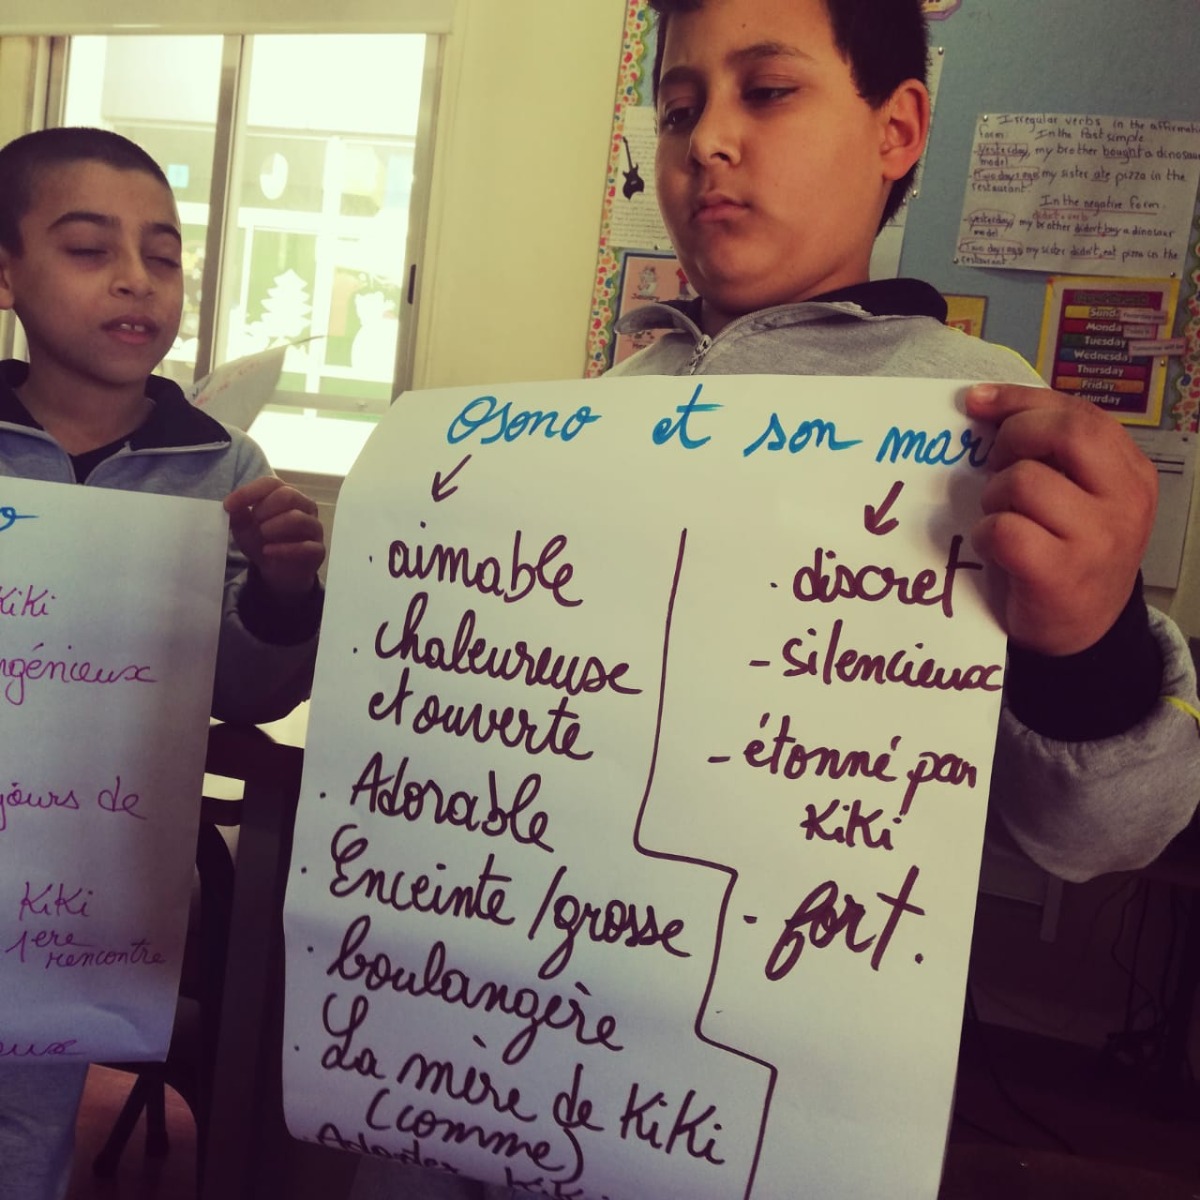 Osono et son mar
. aimable
. chaleureuse
et ouverte
. Adorable
. Enceinte / grosse
. boulangère
. La mère de KiKi
(comme)
. discret
- silencieux
- étonné par
KiKi
- fort.
KiKi
ngénieux
jours de
KiKi
1ere
rencontre
Irregular verbs in the affirmati
form: In the Past simple
- Yesterday, my brother bought a dinosau
model
- Two days ago, my sister ate pizza in the
restaurant
In the negative form.
didn't + verb
- yesterday my brother didn't buy a dinosaur
model
- Two days ago my sister didn't eat pizza in the
restaurant
Sund
Monda
Tuesday
Wednesday
Thursday
Friday
Saturday